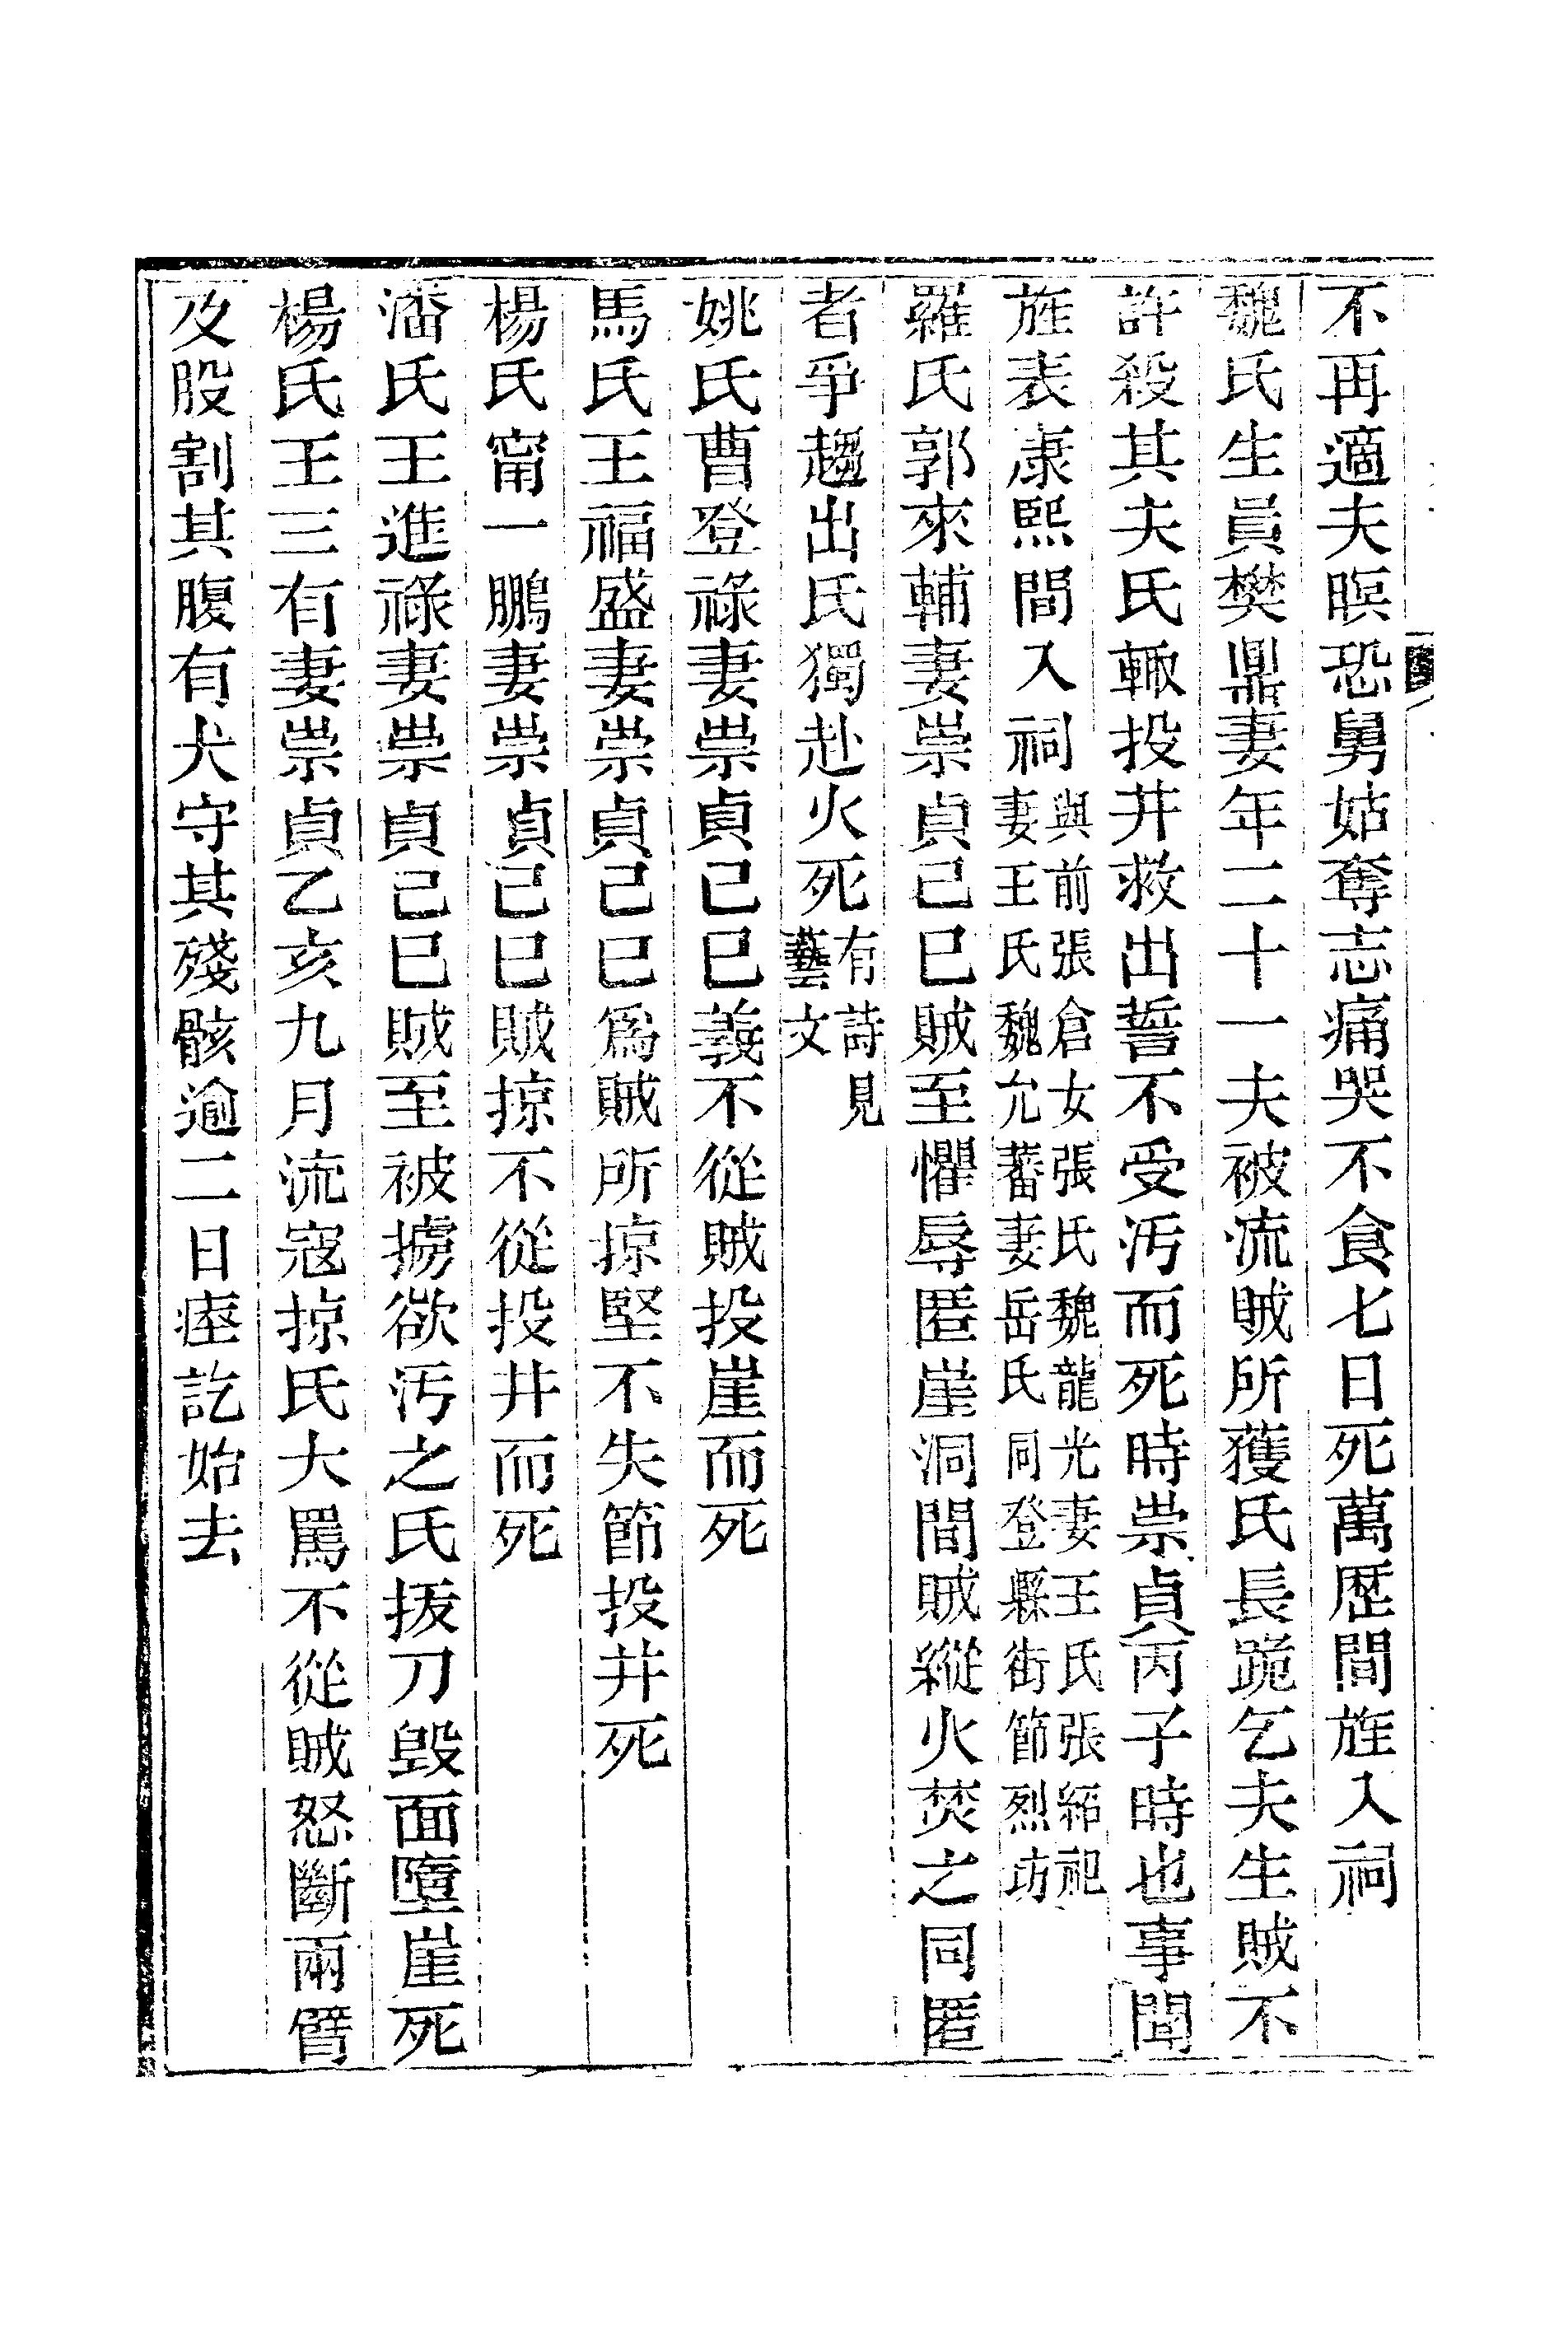 不再適夫暝恐舅姑奪志痛哭不食七日死萬歷間旌入祠
魏氏生員樊鼎妻年二十一夫被流賊所獲氏長跪乞夫生賊不
許殺其夫氏輙投井救出誓不受汚而死時崇貞丙子時也事聞
旌表康熙間入祠與前張倉女張氏魏龍光妻王氏張紹祀
妻王氏魏允蕃妻岳氏同登縣街節烈坊
羅氏郭來輔妻崇貞己巳賊至懼辱匿崖洞間賊縱火焚之同匿
者爭趨出氏獨赴火死有詩見
藝文
姚氏曹登祿妻崇貞己巳義不從賊投崖而死
馬氏王福盛妻崇貞己巳為賊所掠堅不失節投井死
楊氏甯一鵬妻崇貞己巳賊掠不從投井而死
潘氏王進祿妻崇貞己巳賊至被擄欲汚之氏拔刀毀面墮崖死
楊氏王三有妻崇貞乙亥九月流寇掠氏大罵不從賊怒斷兩臂
及股割其腹有犬守其殘骸逾二日瘞訖始去